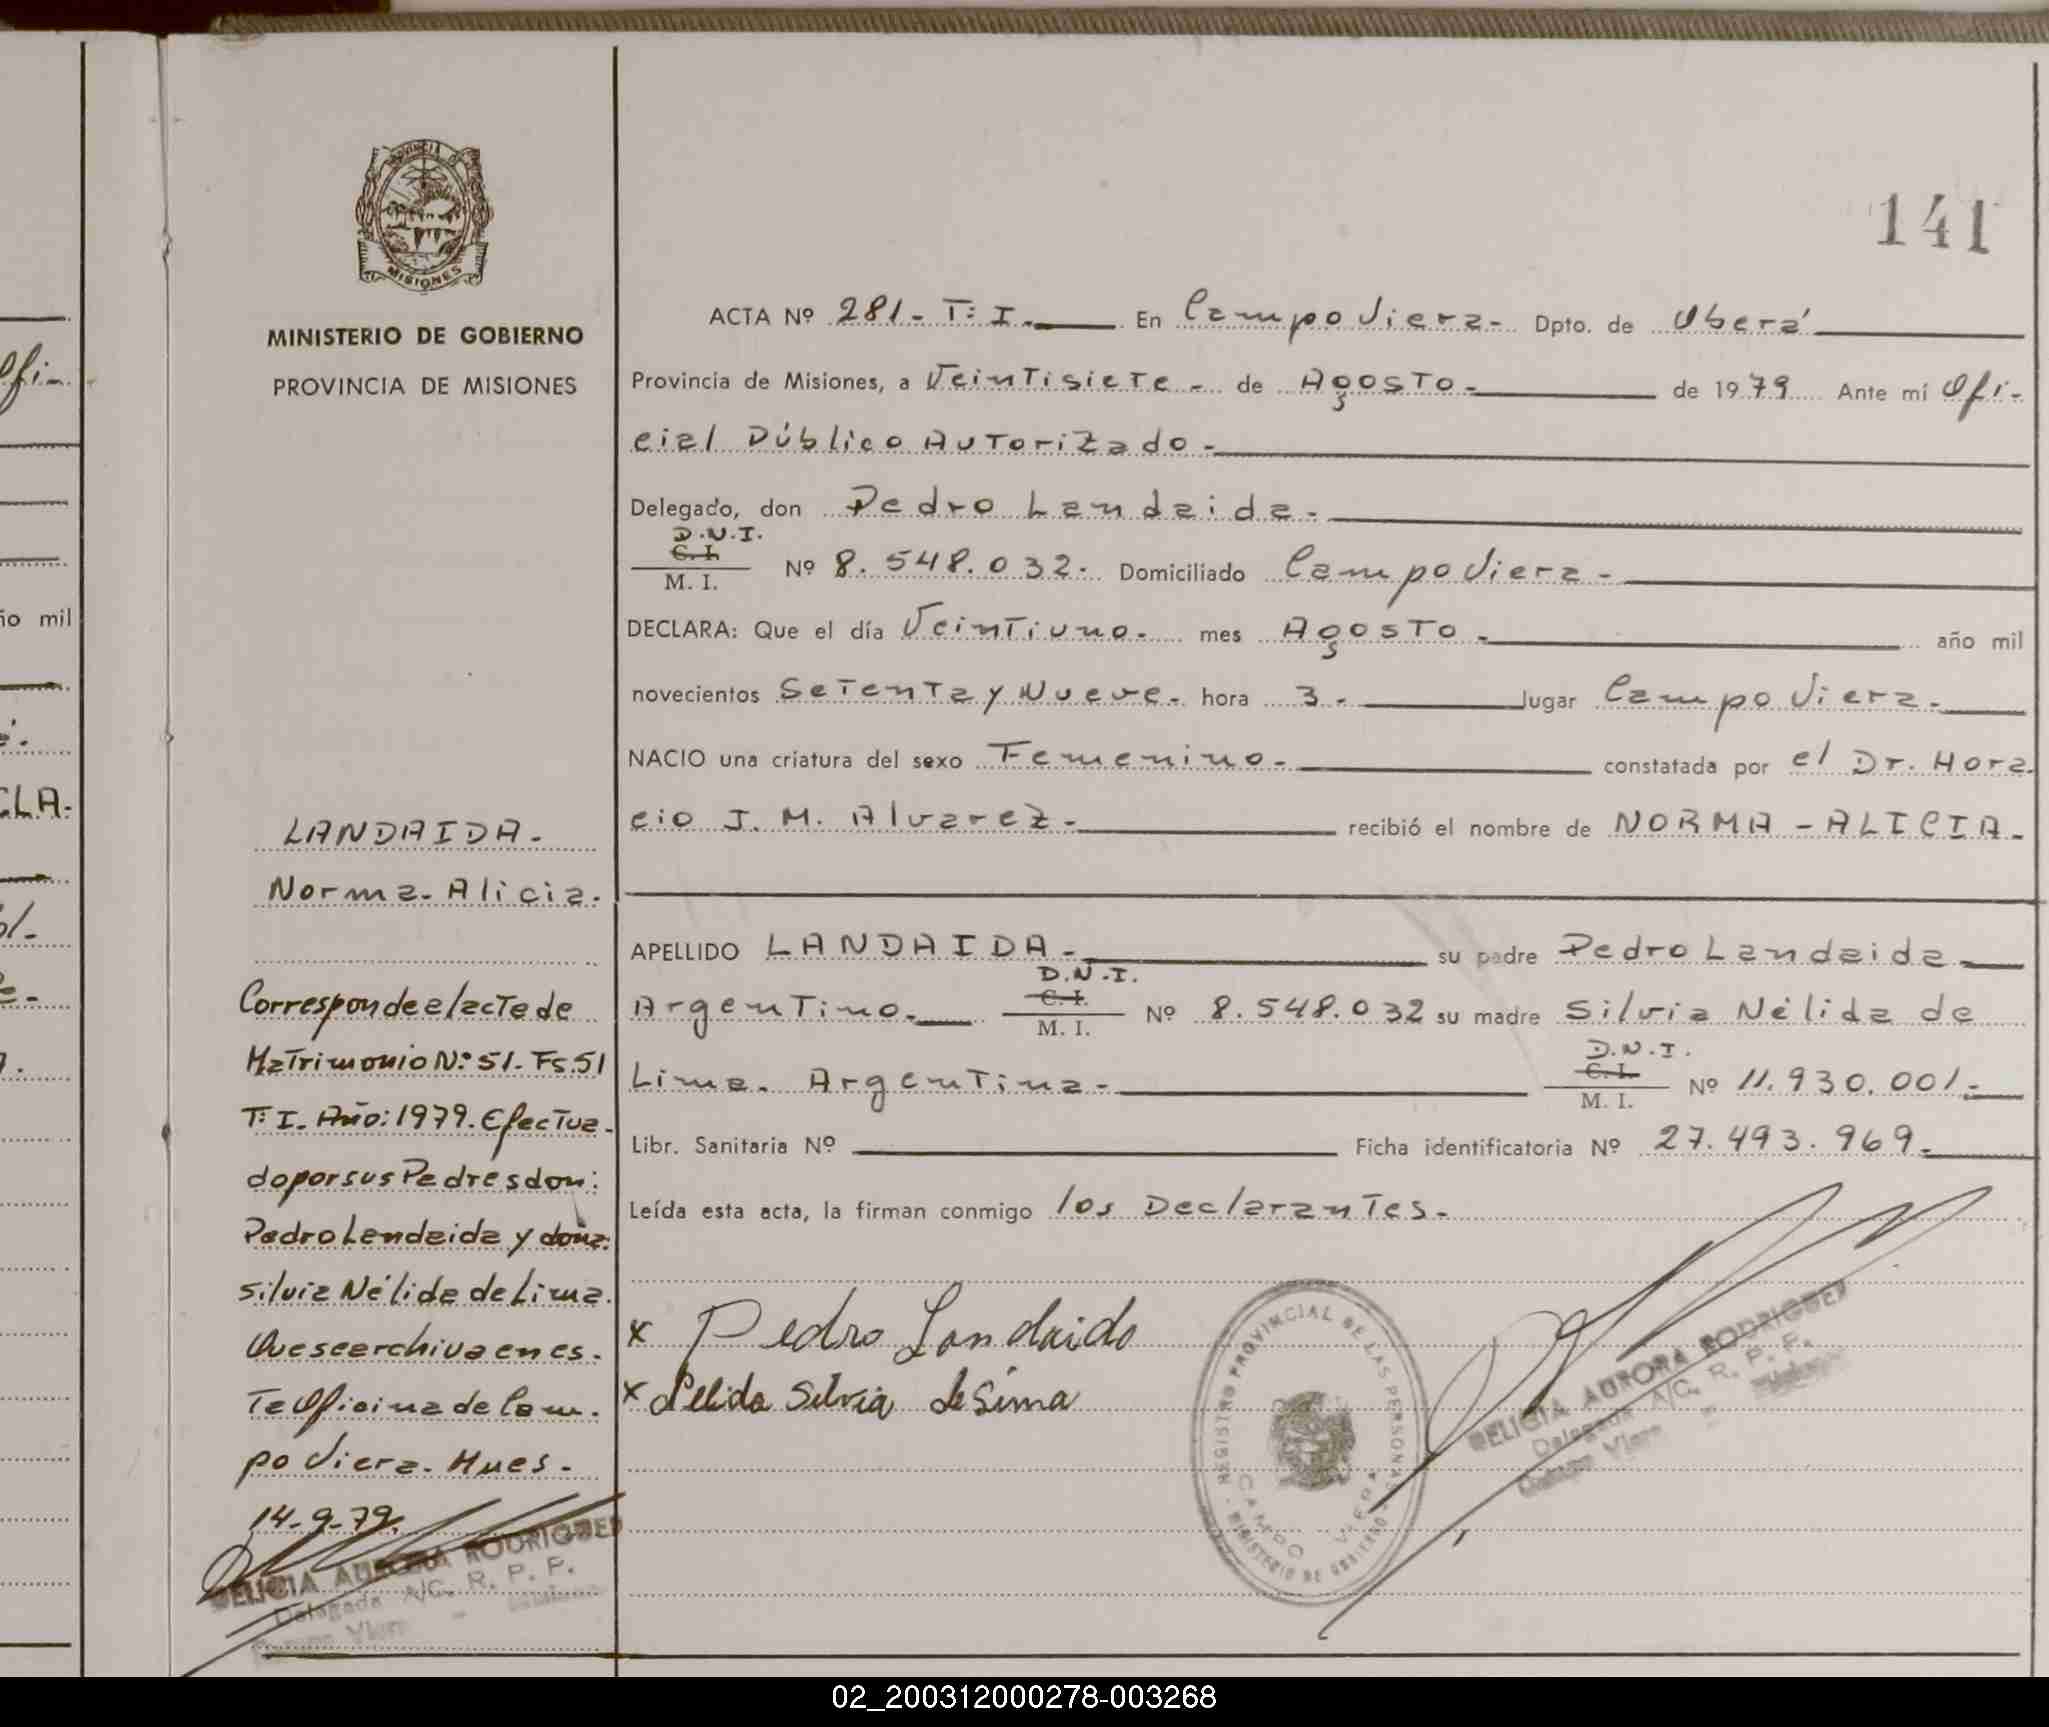 141
PROVINCIA DE
MISIONES
MINISTERIO DE GOBIERNO
PROVINCIA DE MISIONES
LANDAIDA.
Norma-Alicia.
Corresponde el acta de
Matrimonio Nº: 51. Fs. 51
T: I. Año: 1979. Efectua-
do por sus Padres don:
Pedro Landaida y doña:
Silvia Nélida de Lima.
Que se archiva en es-
ta Oficina de Cam-
po Viera. Mnes-
14-9-79.
DELICIA AURORA RODRIGUEZ
Delegada A/C. R. P. P.
Campo Viera
ACTA Nº 281- T: I. En Campo Viera- Dpto. de Oberá
Provincia de Misiones, a Veintisiete- de Agosto- de 1979 Ante mí Ofi-
cial Público Autorizado-
Delegado, don Pedro Landaida-
D.N.I.
C. I.
M. I. Nº 8.548.032. Domiciliado Campo Viera-
DECLARA: Que el día Veintiuno. mes Agosto- año mil
novecientos Setenta y Nueve. hora 3. lugar Campo Viera.
NACIO una criatura del sexo Femenino- constatada por el Dr. Hora
cio J. M. Alvarez- recibió el nombre de NORMA-ALICIA-
APELLIDO LANDAIDA- su padre Pedro Landaida
Argentino. D.N.I.
C. I.
M. I. Nº 8.548.032 su madre Silvia Nélida de
Lima. Argentina- D.N.I.
C. I.
M. I. Nº 11.930.001.-
Libr. Sanitaria Nº Ficha identificatoria Nº 27.493.969.
Leída esta acta, la firman conmigo los Declarantes.
x Pedro Landaida
x Nelida Silvia de Lima
REGISTRO PROVINCIAL DE LAS PERSONAS
MINISTERIO DE GOBIERNO
CAMPO VIERA
DELICIA AURORA RODRIGUEZ
Delegada A/C. R. P. P.
Campo Viera
Ofi-
ño mil
CLA.
02_200312000278-003268